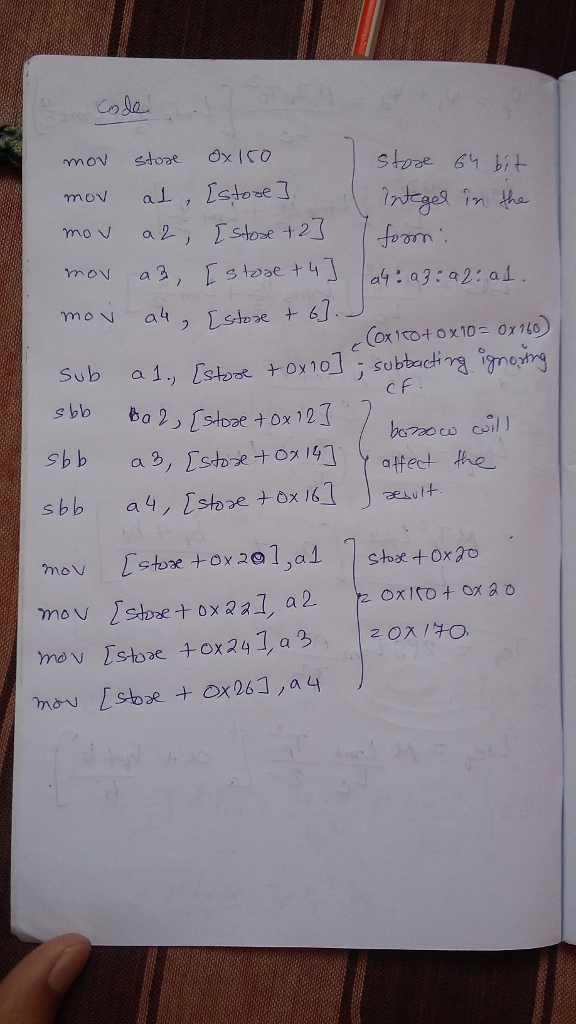 code
mov store 0x150
mov a1, [store]
mov a2, [store+2]
mov a3, [store+4]
mov a4, [store + 6].
store 64 bit
integer in the
form:
a4:a3:a2:a1.
(0x150+0x10=0x160)
sub a1, [store + 0x10] ; subtracting ignoring
CF.
sbb a2, [store+0x12]
sbb a3, [store+0x14]
sbb a4, [store+0x16]
borrow will
affect the
result.
mov [store+0x20], a1
mov [store+0x22], a2
mov [store +0x24], a3
mov [store + 0x26], a4
store+0x20
= 0x150+0x20
= 0x170.